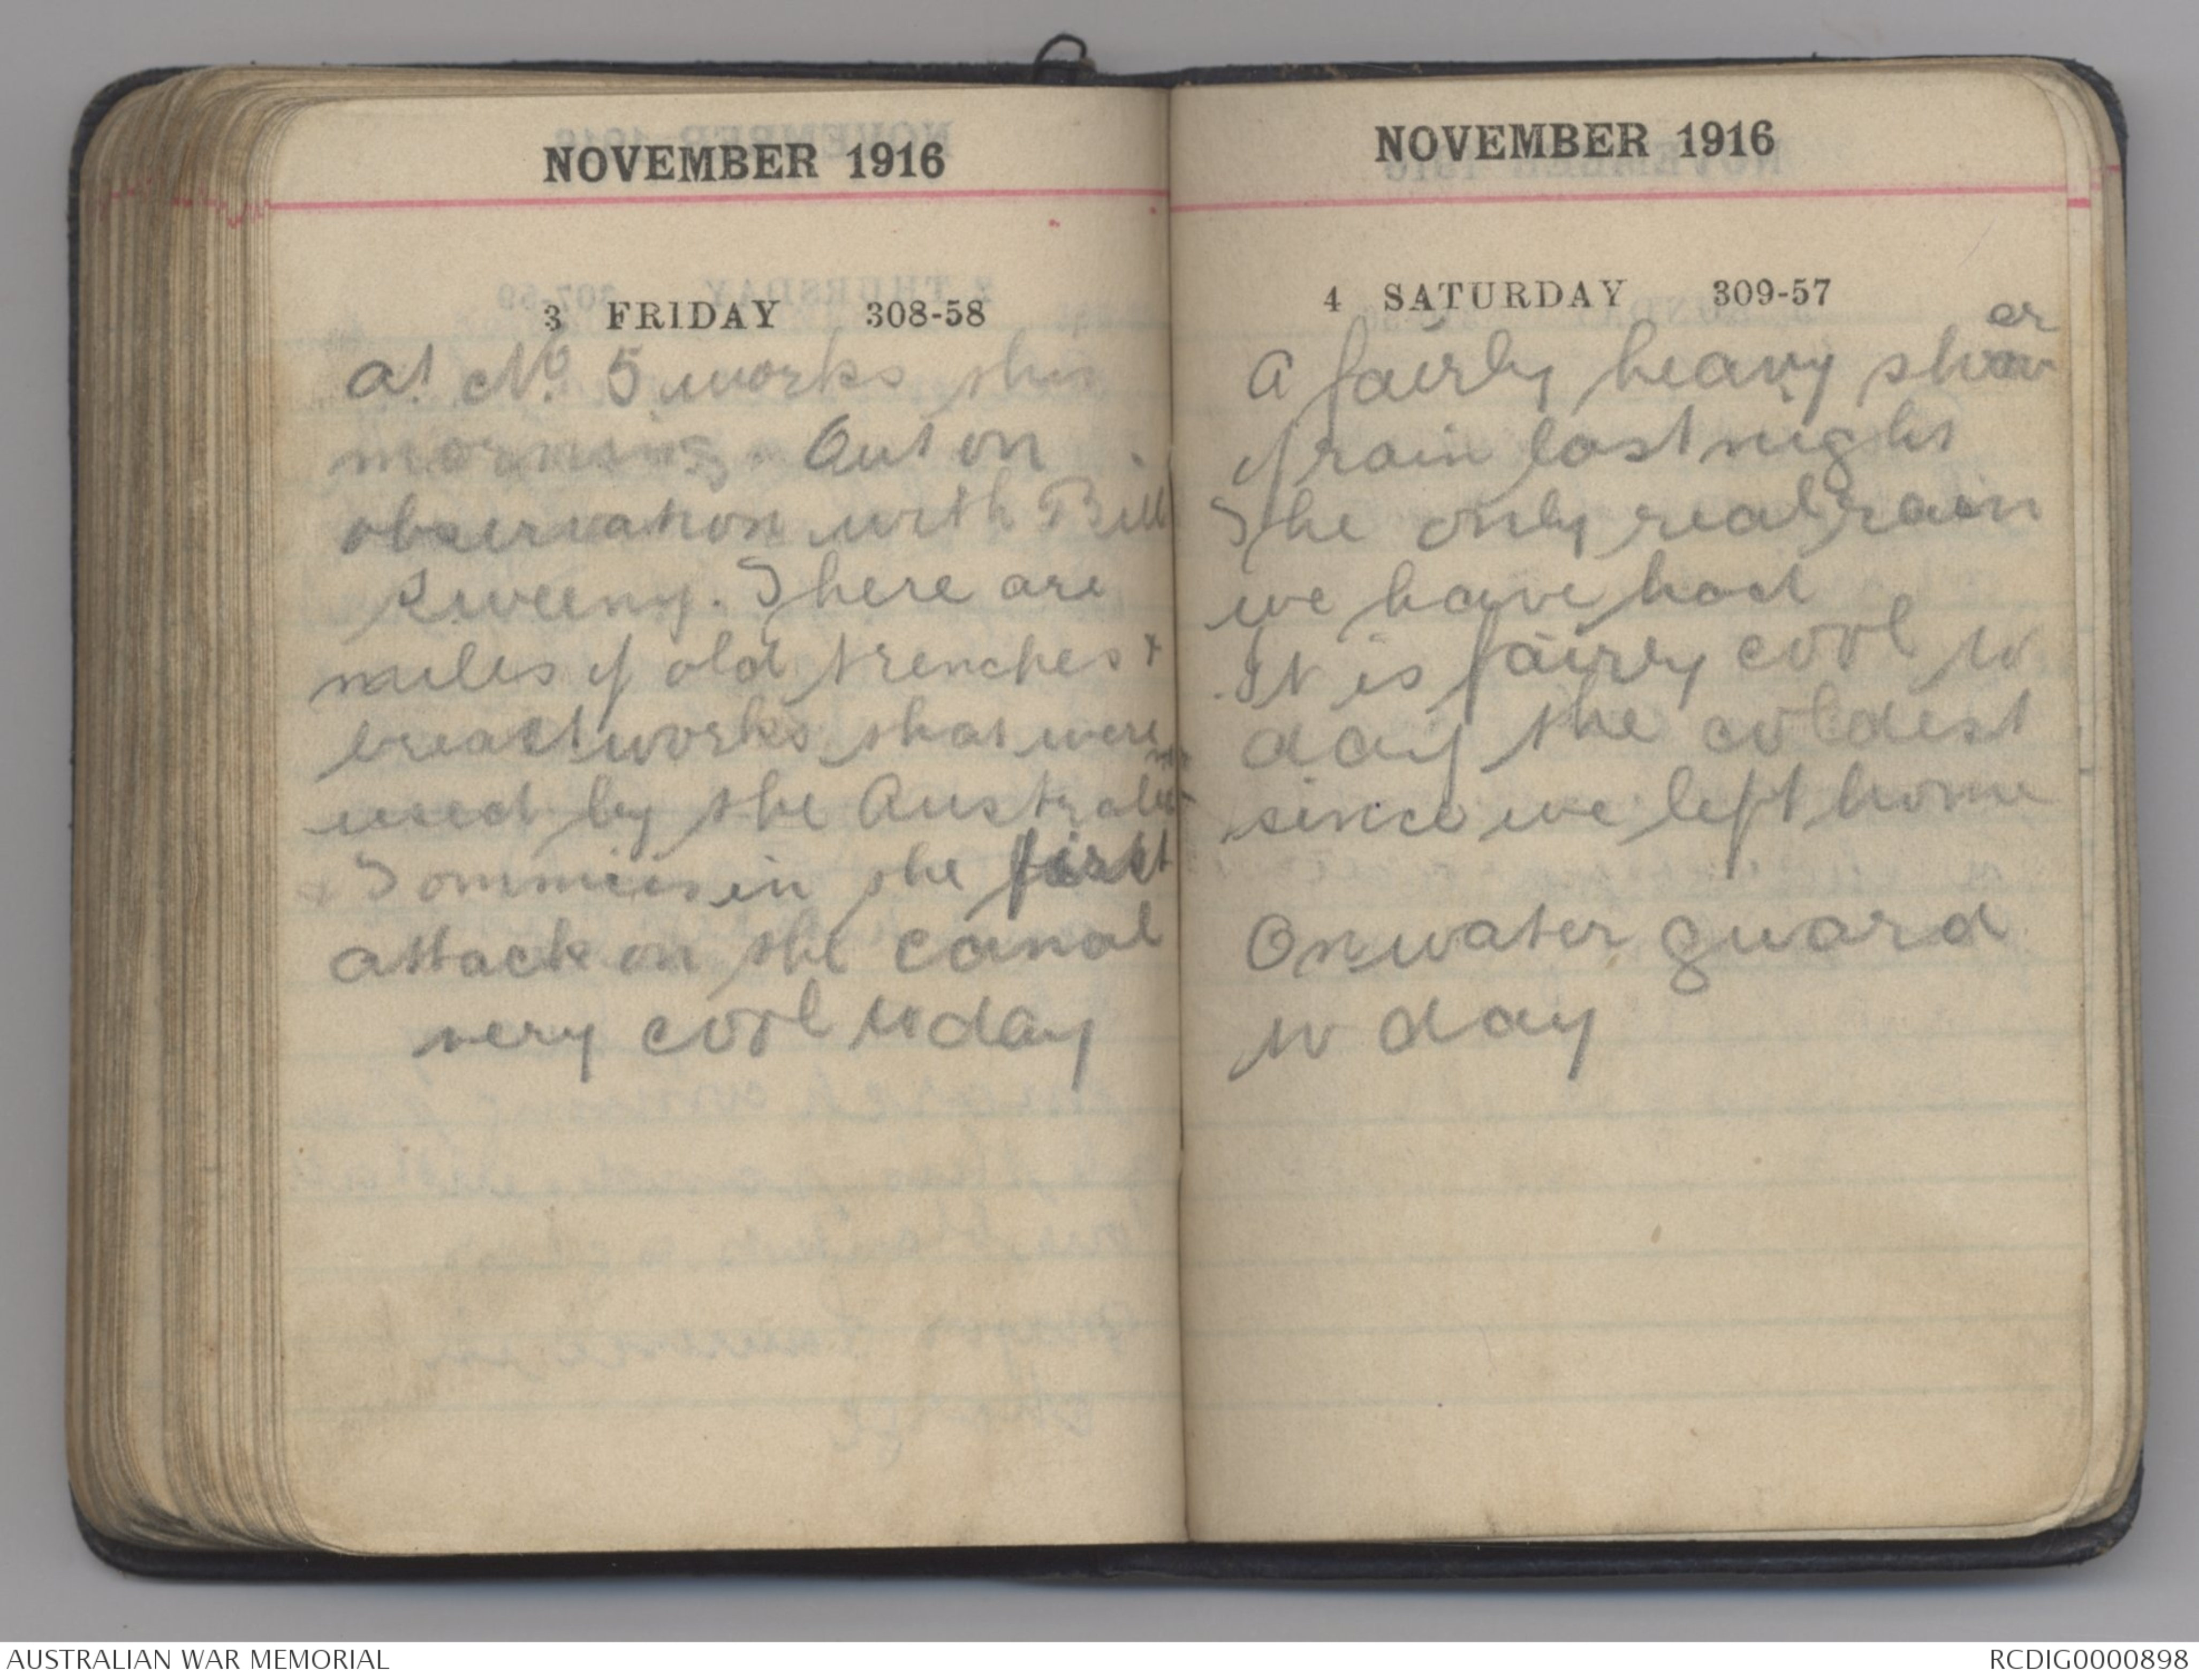 NOVEMBER 1916
3 FRIDAY 308-58
at No 5 works this
morning. Out on
observation with Bill
Sweeny. There are
miles of old trenches +
breastworks that were
used by the Australians
+ Tommies in the first
attack on the canal
very cool to day
NOVEMBER 1916
4 SATURDAY 309-57
A fairly heavy shower
of rain last night
The only real rain
we have had
It is fairly cool to
day the coldest
since we left home
On water guard
to day
AUSTRALIAN WAR MEMORIAL
RCDIG0000898